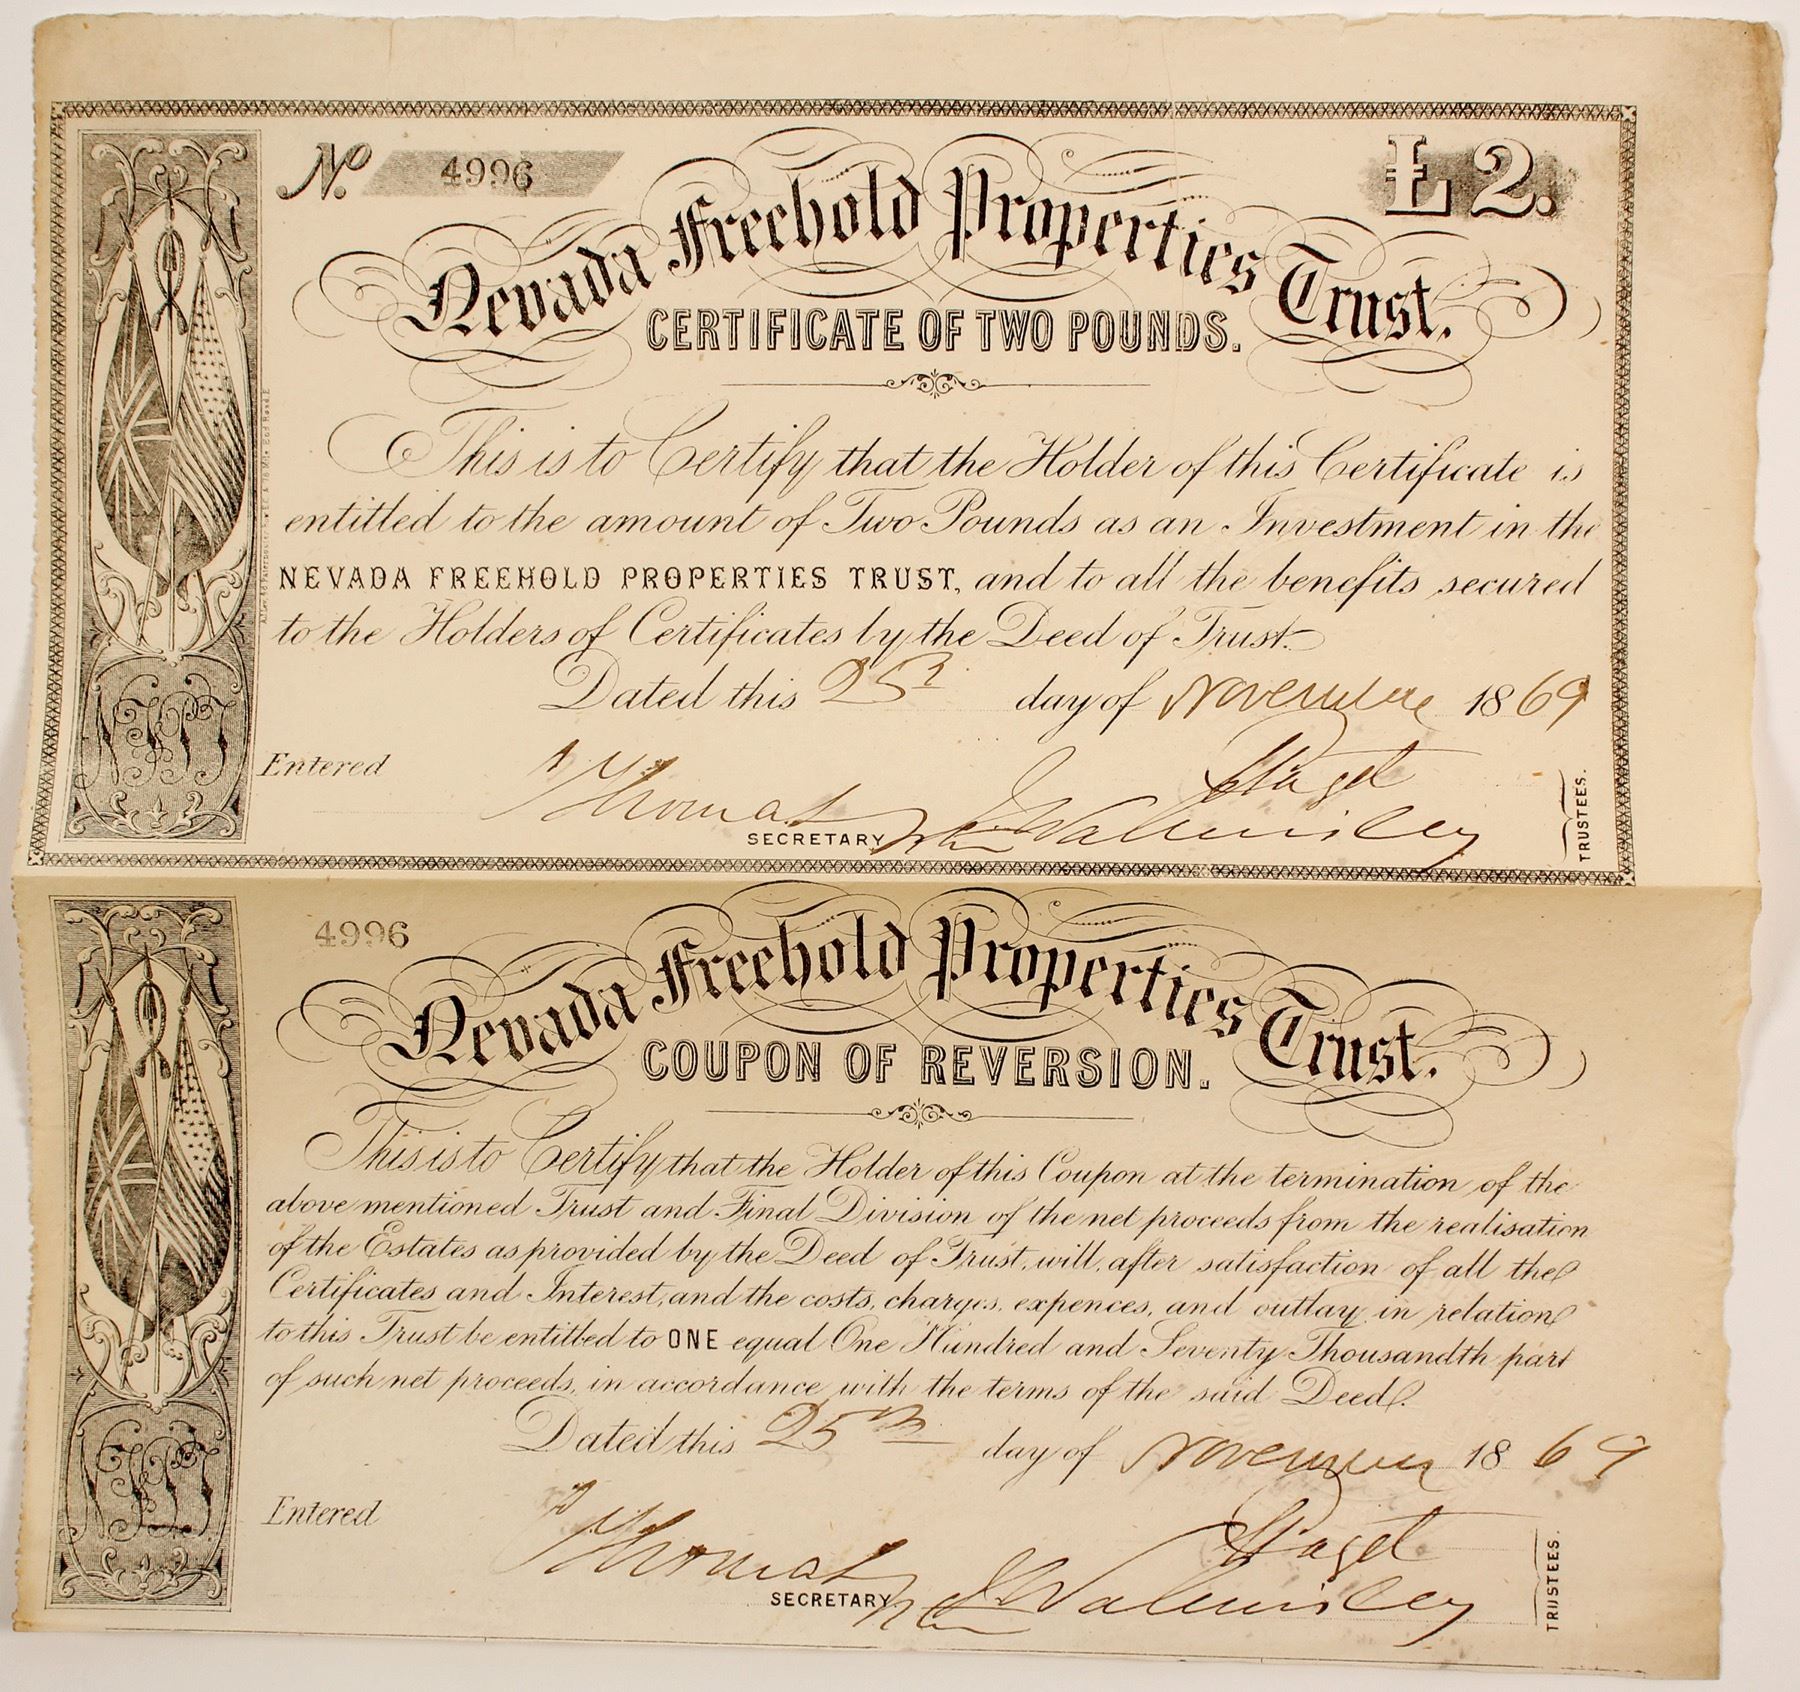 No. 4996
£2.
Nevada Freehold Properties Trust.
CERTIFICATE OF TWO POUNDS.
This is to Certify that the Holder of this Certificate is
entitled to the amount of Two Pounds as an Investment in the
NEVADA FREEHOLD PROPERTIES TRUST, and to all the benefits secured
to the Holders of Certificates by the Deed of Trust.
Dated this 25th day of November 1869
Entered
Thomas
SECRETARY
Paget
J Walmisley
TRUSTEES.
NFPT
4996
Nevada Freehold Properties Trust.
COUPON OF REVERSION.
This is to Certify that the Holder of this Coupon at the termination of the
above mentioned Trust and Final Division of the net proceeds from the realisation
of the Estates as provided by the Deed of Trust, will, after satisfaction of all the
Certificates and Interest, and the costs, charges, expences, and outlay in relation
to this Trust be entitled to ONE equal One Hundred and Seventy Thousandth part
of such net proceeds, in accordance with the terms of the said Deed.
Dated this 25th day of November 1869
Entered
Thomas
SECRETARY
Paget
J Walmisley
TRUSTEES.
NFPT